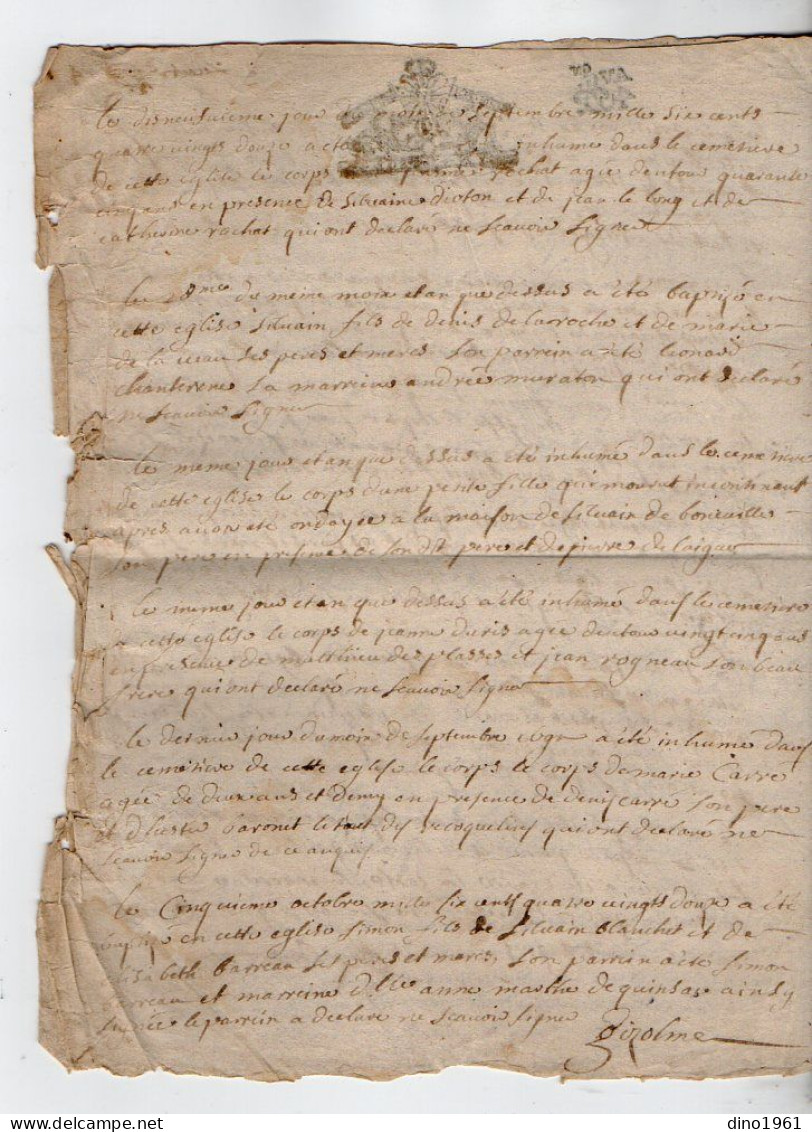 le disneufuieme jour du mois de septembre mille six cents
quatre vingts douze a été inhumé dans le cemetiere
de cette église le corps rachat agée denuiron quarante
cinq ans en presence de silvaine dioton et de jean le long et de
catherine rachat qui ont declaré ne scauoir signer
le 28me du meme mois et an que dessus a été baptisé en
cette eglise silvain fils de denis de larroche et de marie
de la ses peres et meres son parrein a été leonard
chanterene sa marreine andrée muraton qui ont declaré
ne scauoir signer
le meme jour et an que dessus a été inhumé dans le cemetiere
de cette eglise le corps dune petite fille qui mourut incontinant
apres auoir été ondoyée a la maison de silvain de bonuaille
son pere en presence de son dit pere et de pierre de laigue
le meme jour et an que dessus a été inhumé dans le cemetiere
de cette église le corps de jeanne duris agée denuiron vingt cinq ans
en presence de matthieu des plasses et jean rogneau son beau
frere qui ont declaré ne scauoir signer
le dernier jour du mois de septembre a été inhumé dans
le cemetiere de cette eglise le corps le corps de marie Carré
agée de deux ans et demy en presence de denis carré son pere
et le tout des qui ont declaré ne
scauoir signer de ce
le Cinquieme octobre mille six cents quatre vingts douze a été
baptisé en cette eglise simon fils de silvain blanchet et de
elisabeth barreau ses peres et meres son parrein a été simon
barreau et marreine dlle anne marthe de quinsas ainsy
signée le parrein a declaré ne scauoir signer
Girolme
dino1961